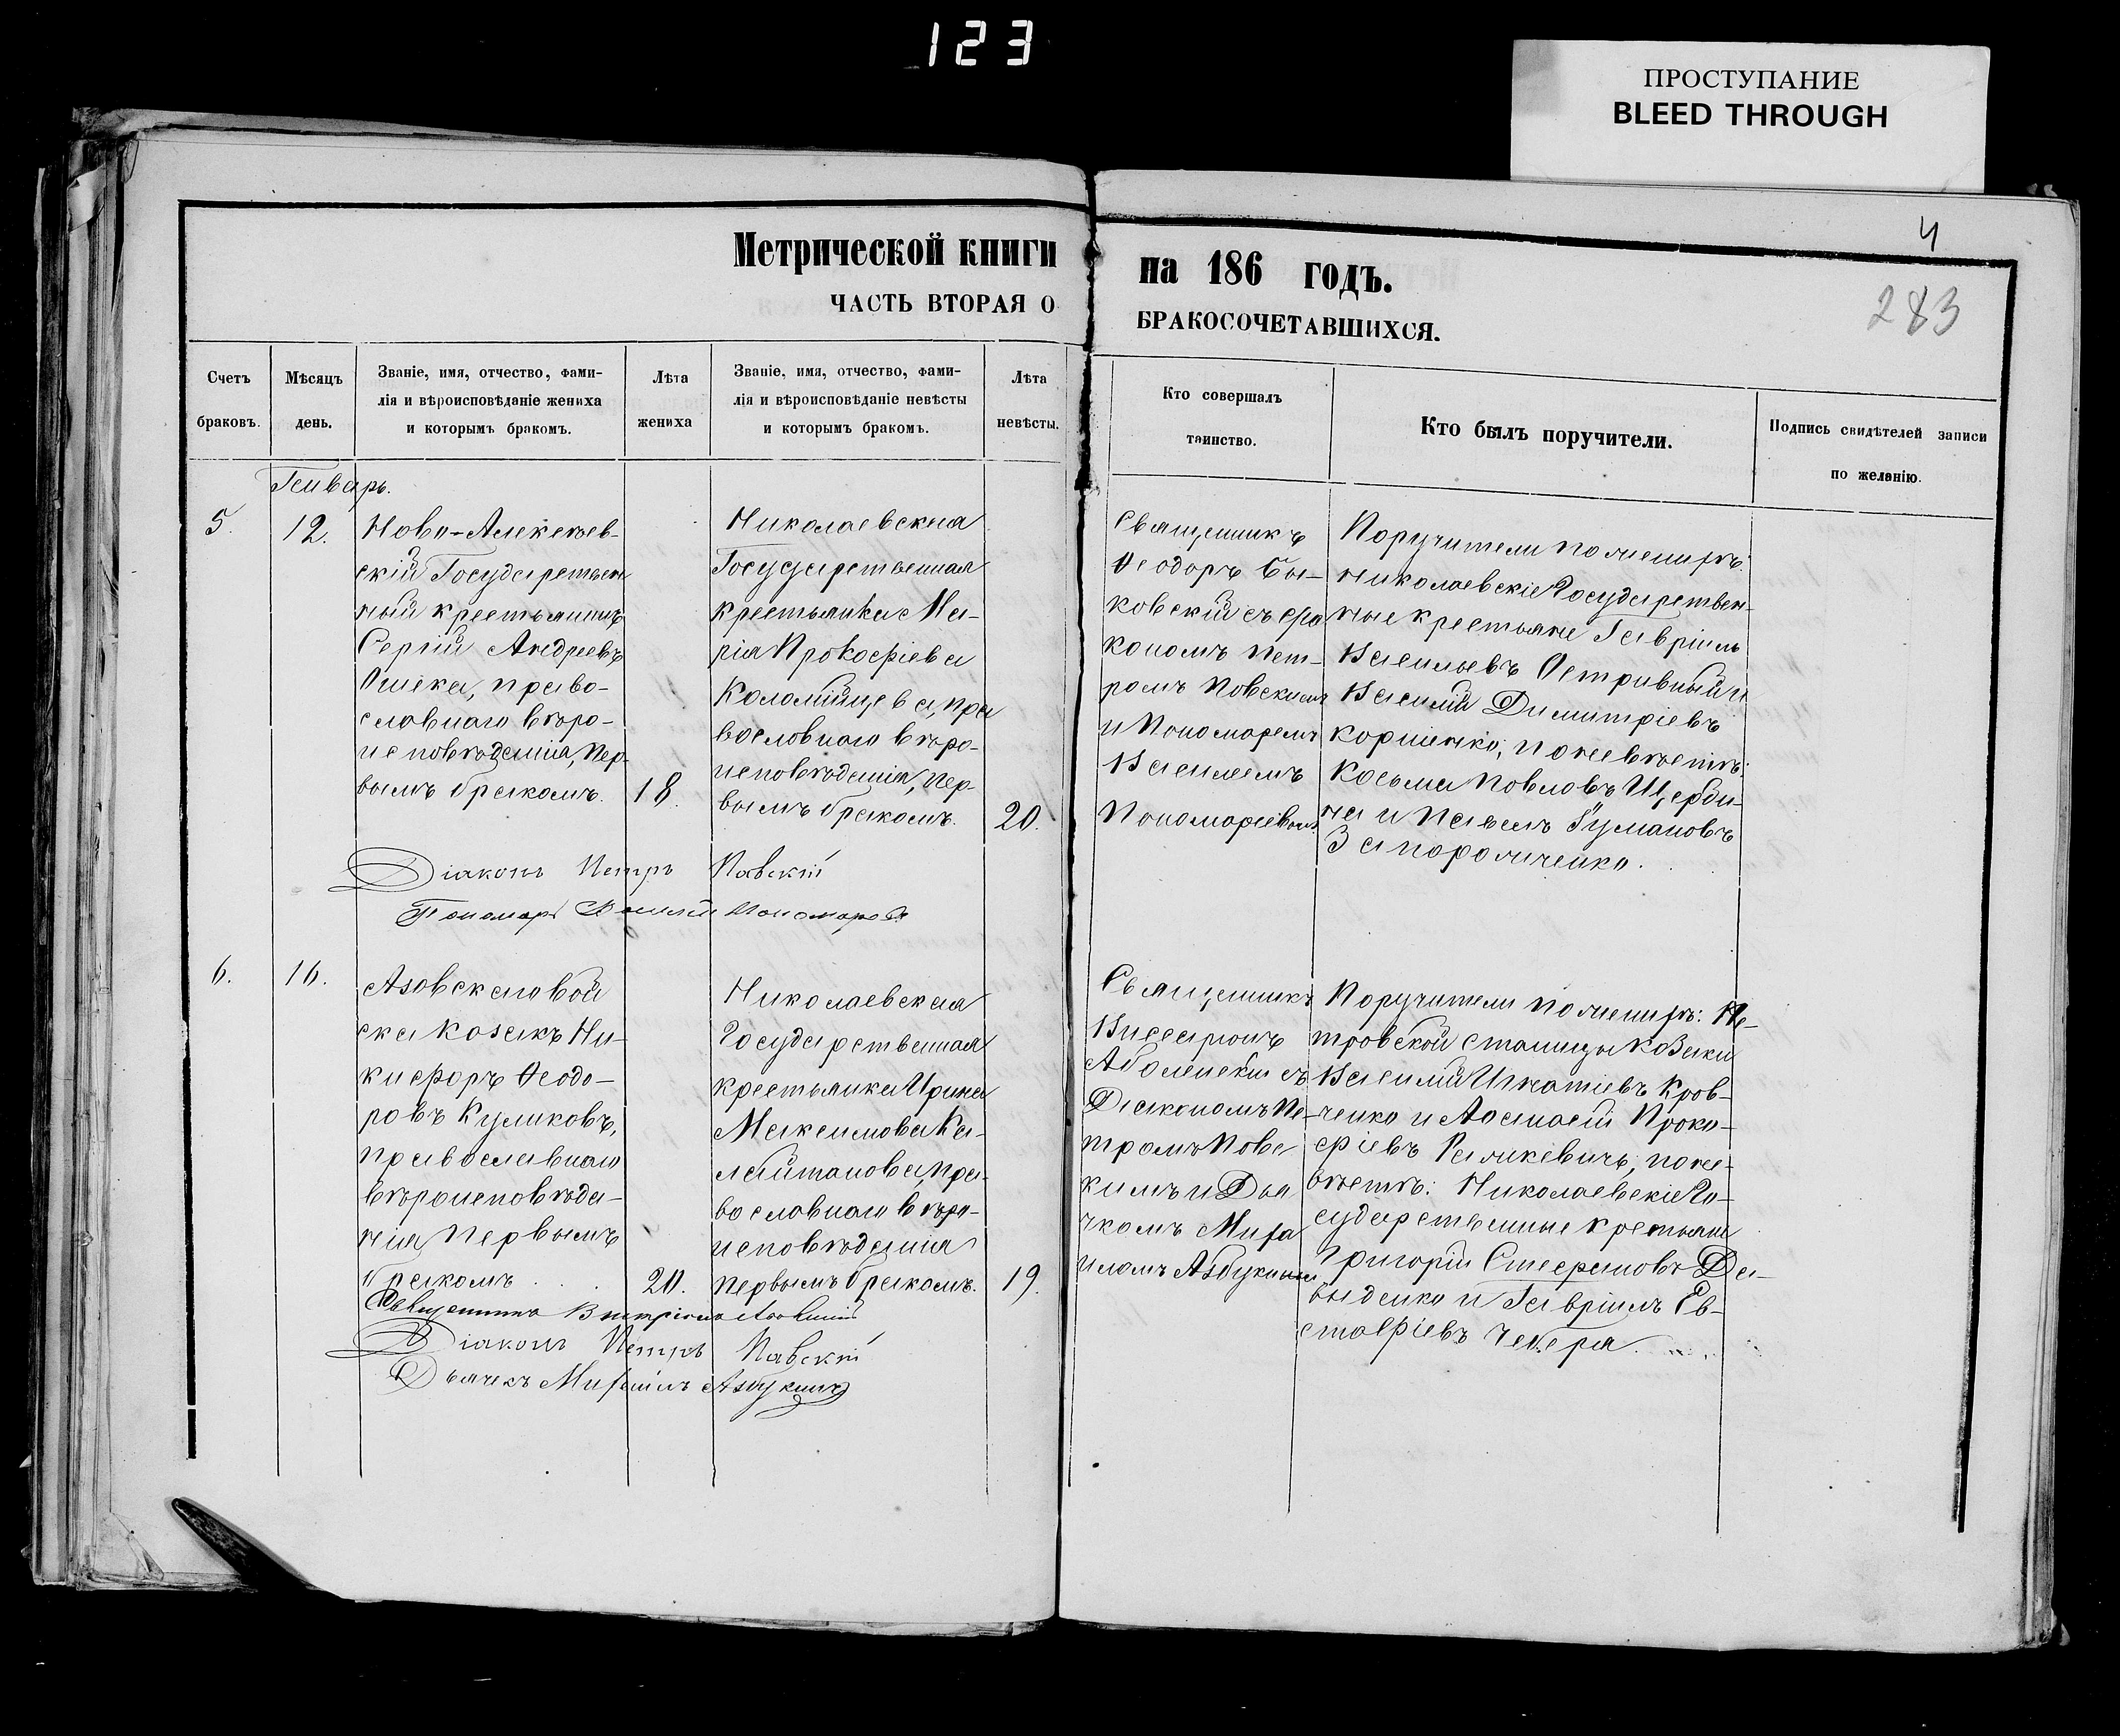 123
ПРОСТУПАНИЕ
BLEED THROUGH
4
283
Метрической книги на 186 годъ.
ЧАСТЬ ВТОРАЯ О БРАКОСОЧЕТАВШИХСЯ.
Счетъ
браковъ.
Мѣсяцъ
день.
Званіе, имя, отчество, фами-
лія и вѣроисповѣданіе жениха
и которымъ бракомъ.
Лѣта
жениха
Званіе, имя, отчество, фами-
лія и вѣроисповѣданіе невѣсты
и которымъ бракомъ.
Лѣта
невѣсты.
Кто совершалъ
таинство.
Кто былъ поручители.
Подпись свидѣтелей записи
по желанію.
Генварь.
5.
12.
Ново-Алексѣев-
скій Государствен
ный крестьянинъ
Сергій Андреевъ
Ошека, право-
славнаго вѣро-
исповѣданія, пер-
вымъ бракомъ.
18.
Николаевская
Государственная
крестьянка Ма-
рія Прокофіева
Коломійцева, пра
вославнаго вѣро-
исповѣданія, пер-
вымъ бракомъ.
20.
Священникъ
Ѳеодоръ Бы-
ковскій съ діа
кономъ Пет-
ромъ Павскимъ
и Пономаремъ
Василіемъ
Пономаревымъ
Поручители по женихѣ:
николаевскіе Государствен-
ные крестьяне Гавріилъ
Васильевъ Остривный и
Василій Димитріевъ
Корніенко, по невѣстѣ:
Косьма Павловъ Щерби-
на и Павелъ Гумановъ
Запорожченко.
Діаконъ Петръ Павскій
Пономарь Василій Пономаревъ
6.
16.
Азовскаго вой
ска козакъ Ни-
кифоръ Ѳеодо-
ровъ Куликовъ,
православнаго
вѣроисповѣда-
нія первымъ
бракомъ
20.
Николаевская
Государственная
крестьянка Ирина
Максимова Ка-
лайтанова, пра-
вославнаго вѣро-
исповѣданія
первымъ бракомъ.
19.
Священникъ
Виссаріонъ
Аболенскій съ
Діакономъ Пе-
тромъ Павс
кимъ и Дья
чкомъ Миха
иломъ Азбукинымъ
Поручители по женихѣ: Пе-
тровской станицы козаки
Василій Игнатіевъ Крав-
ченко и Аѳанасій Проко-
фіевъ Рашкевичъ, по не-
вѣстѣ: Николаевскіе Го-
сударственные крестьяне
Григорій Стефановъ Да-
выденко и Гавріилъ Ев-
стафіевъ Чепера
Священникъ
Діаконъ Петръ Павскій
Дьячекъ Михаилъ Азбукинъ